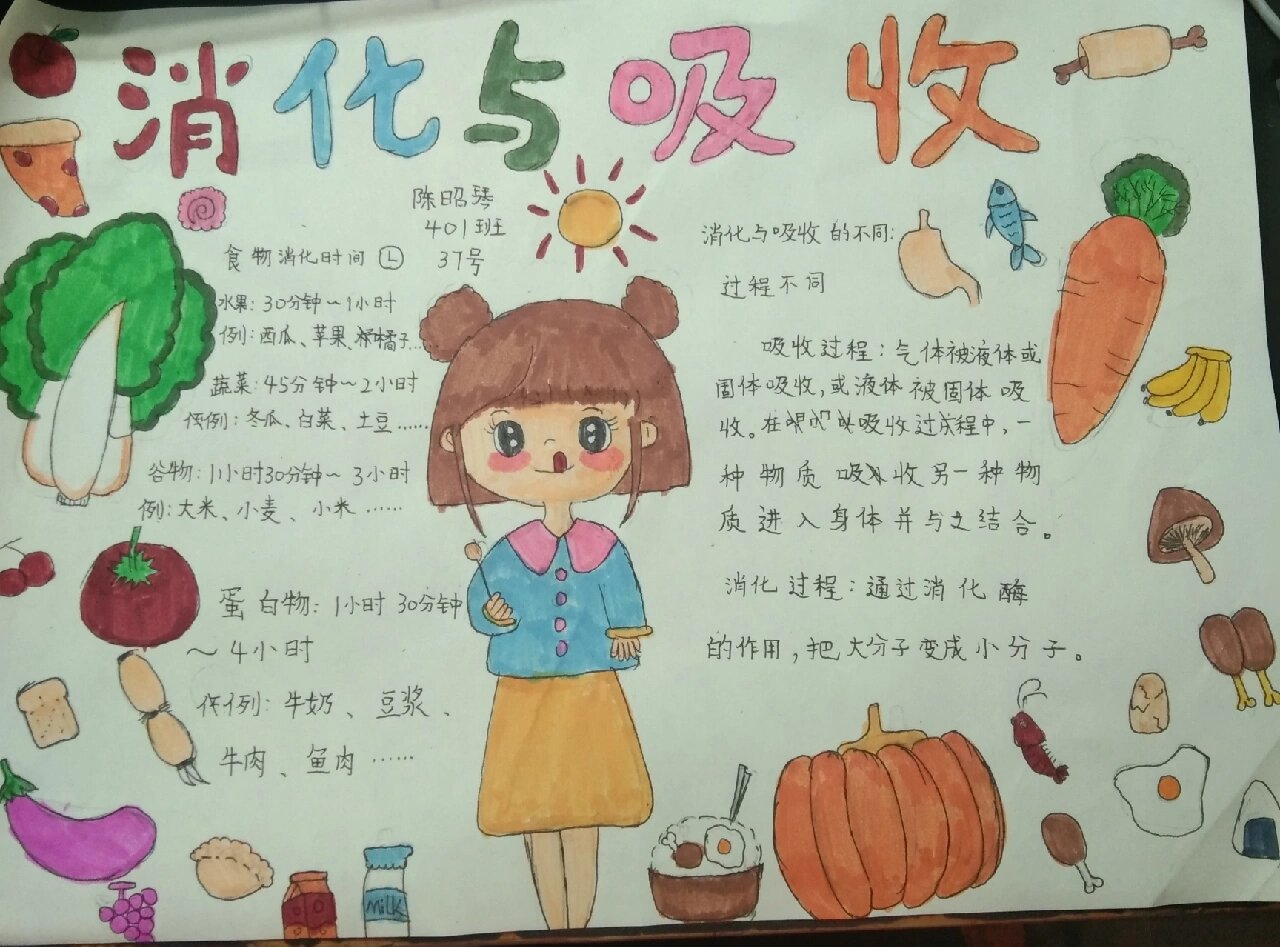 消化与吸收
陈昭琴
401班
37号
食物消化时间
水果：30分钟～1小时
例：西瓜、苹果、橘子…
蔬菜：45分钟～2小时
例：冬瓜、白菜、土豆……
谷物：1小时30分钟～3小时
例：大米、小麦、小米……
蛋白物：1小时30分钟
～4小时
例：牛奶、豆浆、
牛肉、鱼肉……
消化与吸收的不同：
过程不同
吸收过程：气体被液体或
固体吸收，或液体被固体吸
收。在吸收过程中，一
种物质吸收另一种物
质进入身体并与之结合。
消化过程：通过消化酶
的作用，把大分子变成小分子。
MiLK